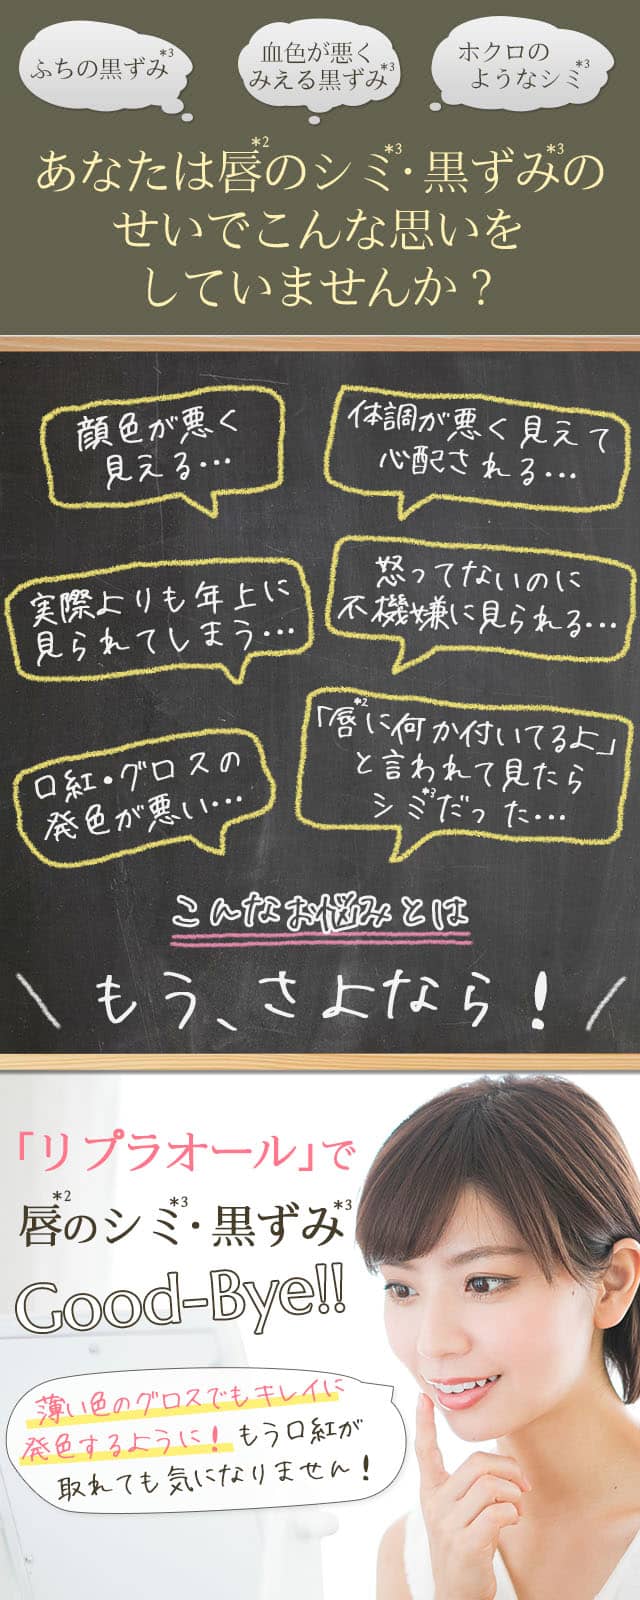 ふちの黒ずみ*3
血色が悪く
みえる黒ずみ*3
ホクロの
ようなシミ*3
あなたは唇*2のシミ*3・黒ずみ*3の
せいでこんな思いを
していませんか？
顔色が悪く
見える…
体調が悪く見えて
心配される…
実際よりも年上に
見られてしまう…
怒ってないのに
不機嫌に見られる…
口紅・グロスの
発色が悪い…
「唇*2に何か付いてるよ」
と言われて見たら
シミ*3だった…
こんなお悩みとは
\ もう、さよなら！ /
「リプラオール」で
唇*2のシミ*3・黒ずみ*3
Good-Bye!!
薄い色のグロスでもキレイに
発色するように！もう口紅が
取れても気になりません！